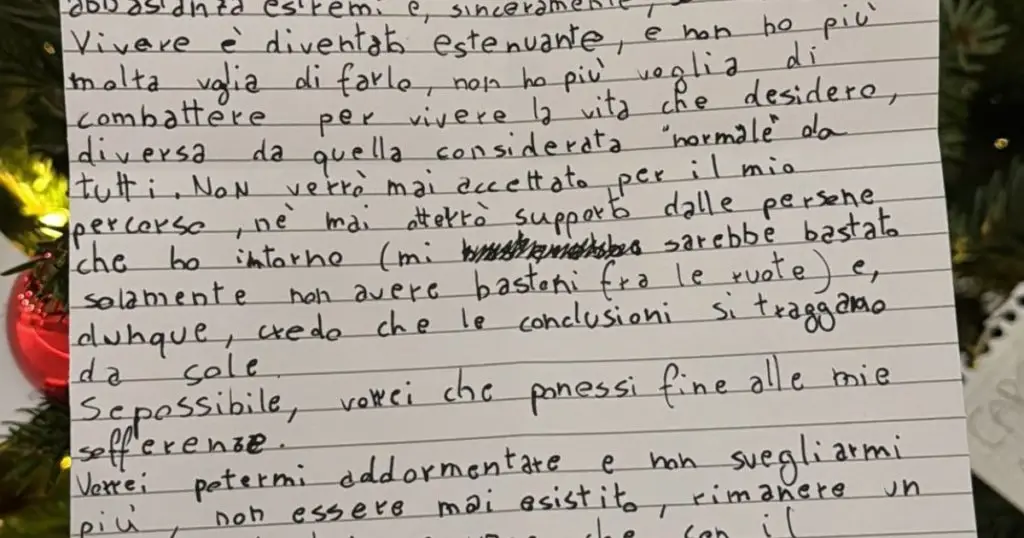 abbastanza estremi e, sinceramente,
Vivere è diventato estenuante, e non ho più
molta voglia di farlo, non ho più voglia di
combattere per vivere la vita che desidero,
diversa da quella considerata "normale" da
tutti. Non verrò mai accettato per il mio
percorso, nè mai otterrò supporto dalle persone
che ho intorno (mi sarebbe bastato
solamente non avere bastoni fra le ruote) e,
dunque, credo che le conclusioni si traggano
da sole.
Se possibile, vorrei che ponessi fine alle mie
sofferenze.
Vorrei potermi addormentare e non svegliarmi
più, non essere mai esistito, rimanere un
che con il